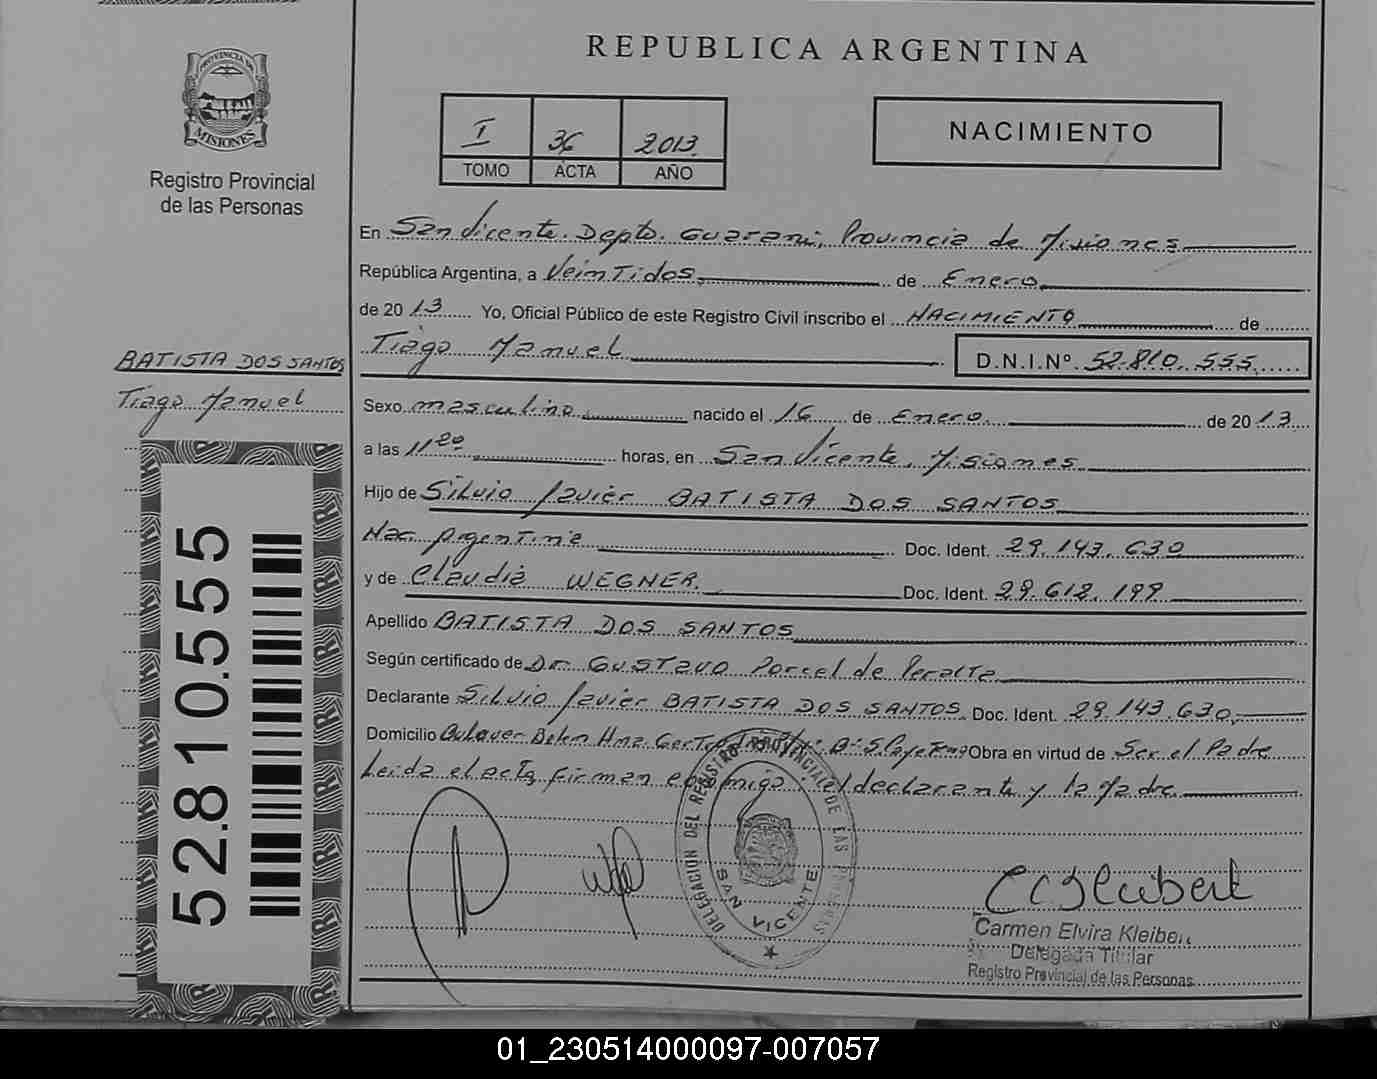 REPUBLICA ARGENTINA
PROVINCIA DE MISIONES
Registro Provincial
de las Personas
I 36 2013
TOMO ACTA AÑO
NACIMIENTO
En San Vicente. Depto. Guarani, Provincia de Misiones
República Argentina, a VeinTidos de Enero
de 20 13 Yo, Oficial Público de este Registro Civil inscribo el NACIMIENTO de
Tiago Manuel D.N.I.Nº 52.810.555
BATISTA DOS SANTOS
Tiago Manuel
52.810.555
Sexo masculino nacido el 16 de Enero de 20 13
a las 11 20 horas, en San Vicente, Misiones
Hijo de Silvio Javier BATISTA DOS SANTOS
Nac. Argentina Doc. Ident. 29.143.630
y de Claudia WEGNER Doc. Ident. 29.612.199
Apellido BATISTA DOS SANTOS
Según certificado de Dr. GUSTAVO Porcel de Peralta
Declarante Silvio Javier BATISTA DOS SANTOS Doc. Ident. 29.143.630
Domicilio Bº S. Obra en virtud de Ser el Padre
Leida el acta, firman conmigo: el declarante y la Madre
DELEGACION DEL REGISTRO PROVINCIAL DE LAS PERSONAS
SAN VICENTE
Carmen Elvira Kleibert
Delegada Titular
Registro Provincial de las Personas
01_230514000097-007057